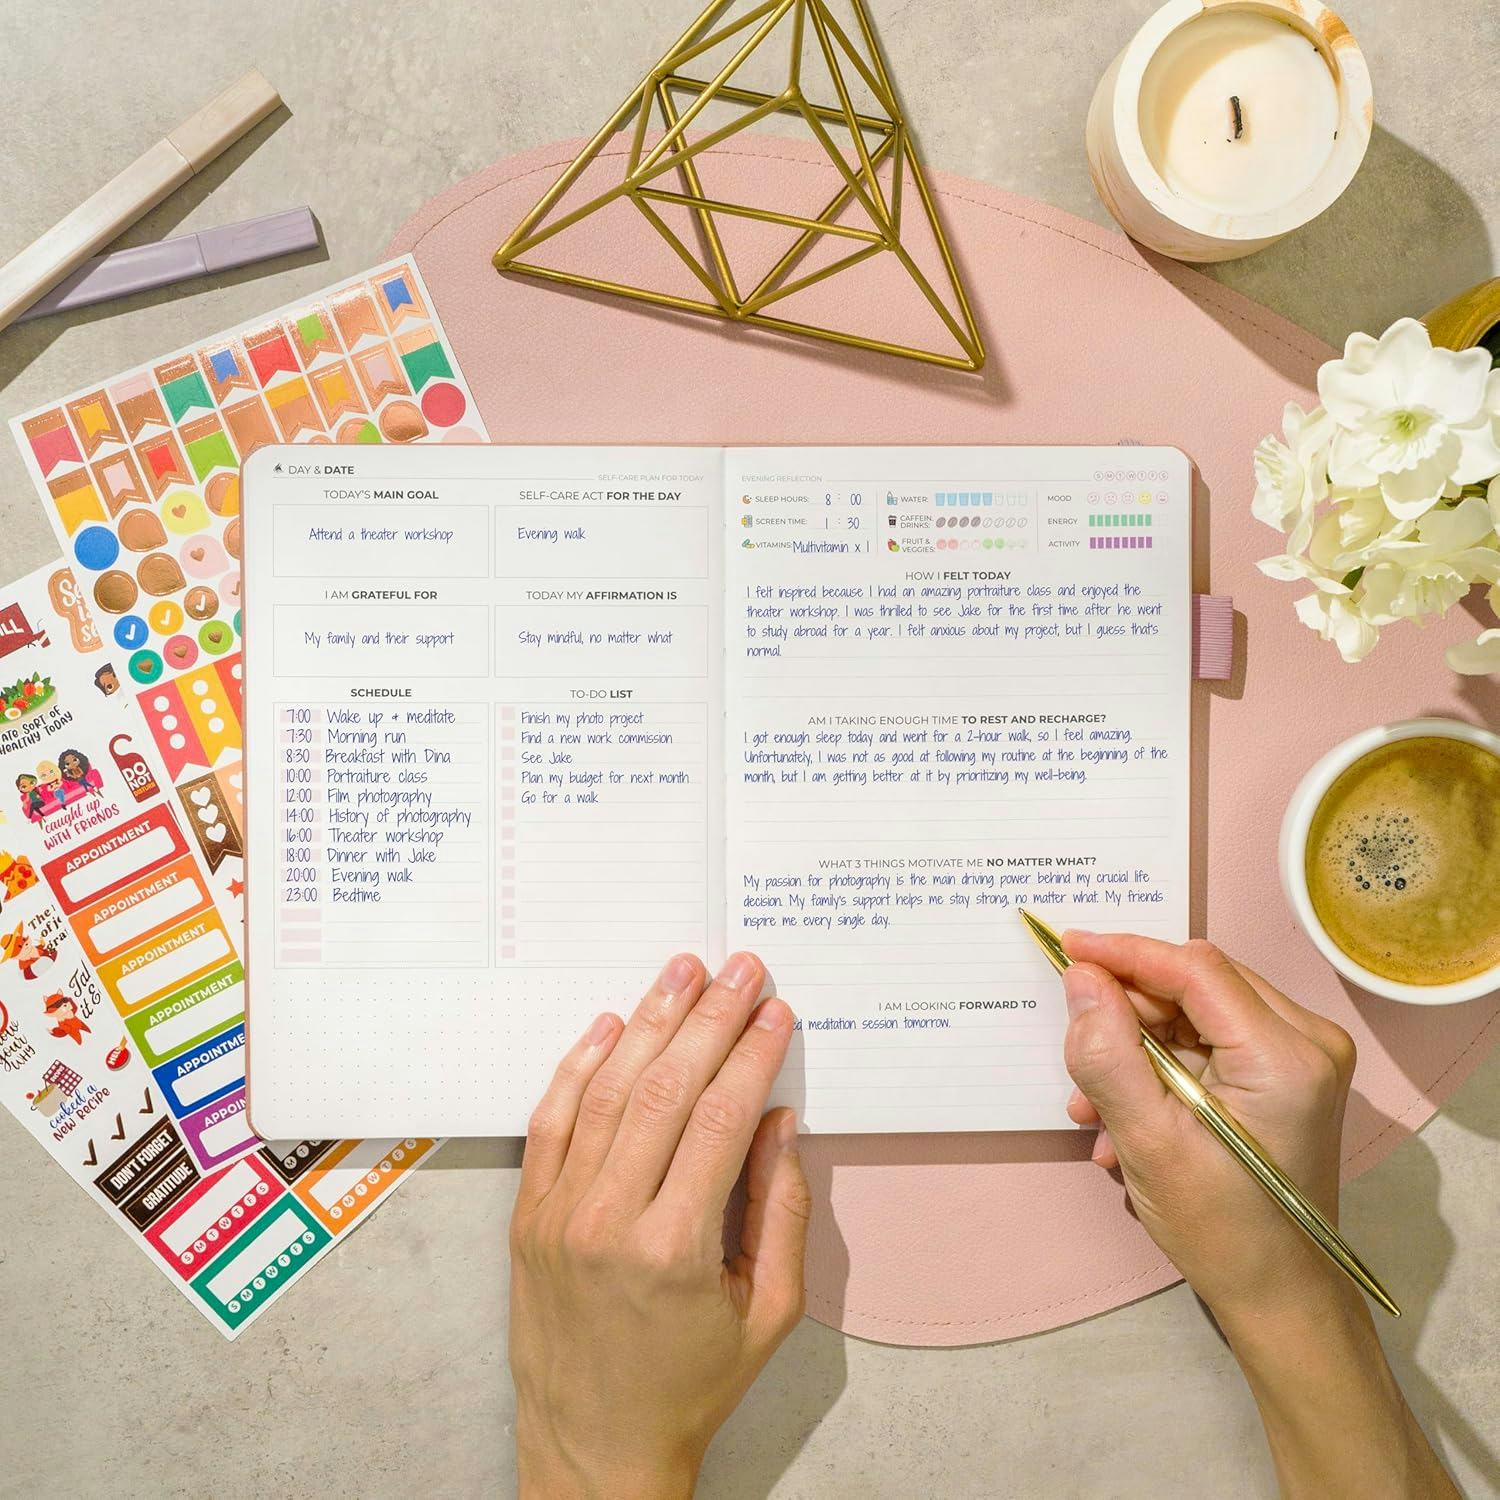 DAY & DATE
SELF-CARE PLAN FOR TODAY
TODAY'S MAIN GOAL
Attend a theater workshop
SELF-CARE ACT FOR THE DAY
Evening walk
I AM GRATEFUL FOR
My family and their support
TODAY MY AFFIRMATION IS
Stay mindful, no matter what
SCHEDULE
7:00 Wake up + meditate
7:30 Morning run
8:30 Breakfast with Dina
10:00 Portraiture class
12:00 Film photography
14:00 History of photography
16:00 Theater workshop
18:00 Dinner with Jake
20:00 Evening walk
23:00 Bedtime
TO-DO LIST
Finish my photo project
Find a new work commission
See Jake
Plan my budget for next month
Go for a walk
EVENING REFLECTION
S M T W T F S
SLEEP HOURS: 8 : 00
SCREEN TIME: 1 : 30
VITAMINS: Multivitamin x 1
WATER:
CAFFEIN. DRINKS:
FRUIT & VEGGIES:
MOOD
ENERGY
ACTIVITY
HOW I FELT TODAY
I felt inspired because I had an amazing portraiture class and enjoyed the
theater workshop. I was thrilled to see Jake for the first time after he went
to study abroad for a year. I felt anxious about my project, but I guess that's
normal.
AM I TAKING ENOUGH TIME TO REST AND RECHARGE?
I got enough sleep today and went for a 2-hour walk, so I feel amazing.
Unfortunately, I was not as good at following my routine at the beginning of the
month, but I am getting better at it by prioritizing my well-being.
WHAT 3 THINGS MOTIVATE ME NO MATTER WHAT?
My passion for photography is the main driving power behind my crucial life
decision. My family's support helps me stay strong, no matter what. My friends
inspire me every single day.
I AM LOOKING FORWARD TO
meditation session tomorrow.
ATE SORT OF
HEALTHY TODAY
DO
NOT
DISTURB
caught up
WITH FRIENDS
APPOINTMENT
APPOINTMENT
APPOINTMENT
APPOINTMENT
The
cooked a
NEW RECIPE
DON'T FORGET
GRATITUDE
S M T W T F S
S M T W T F S
S M T W T F S